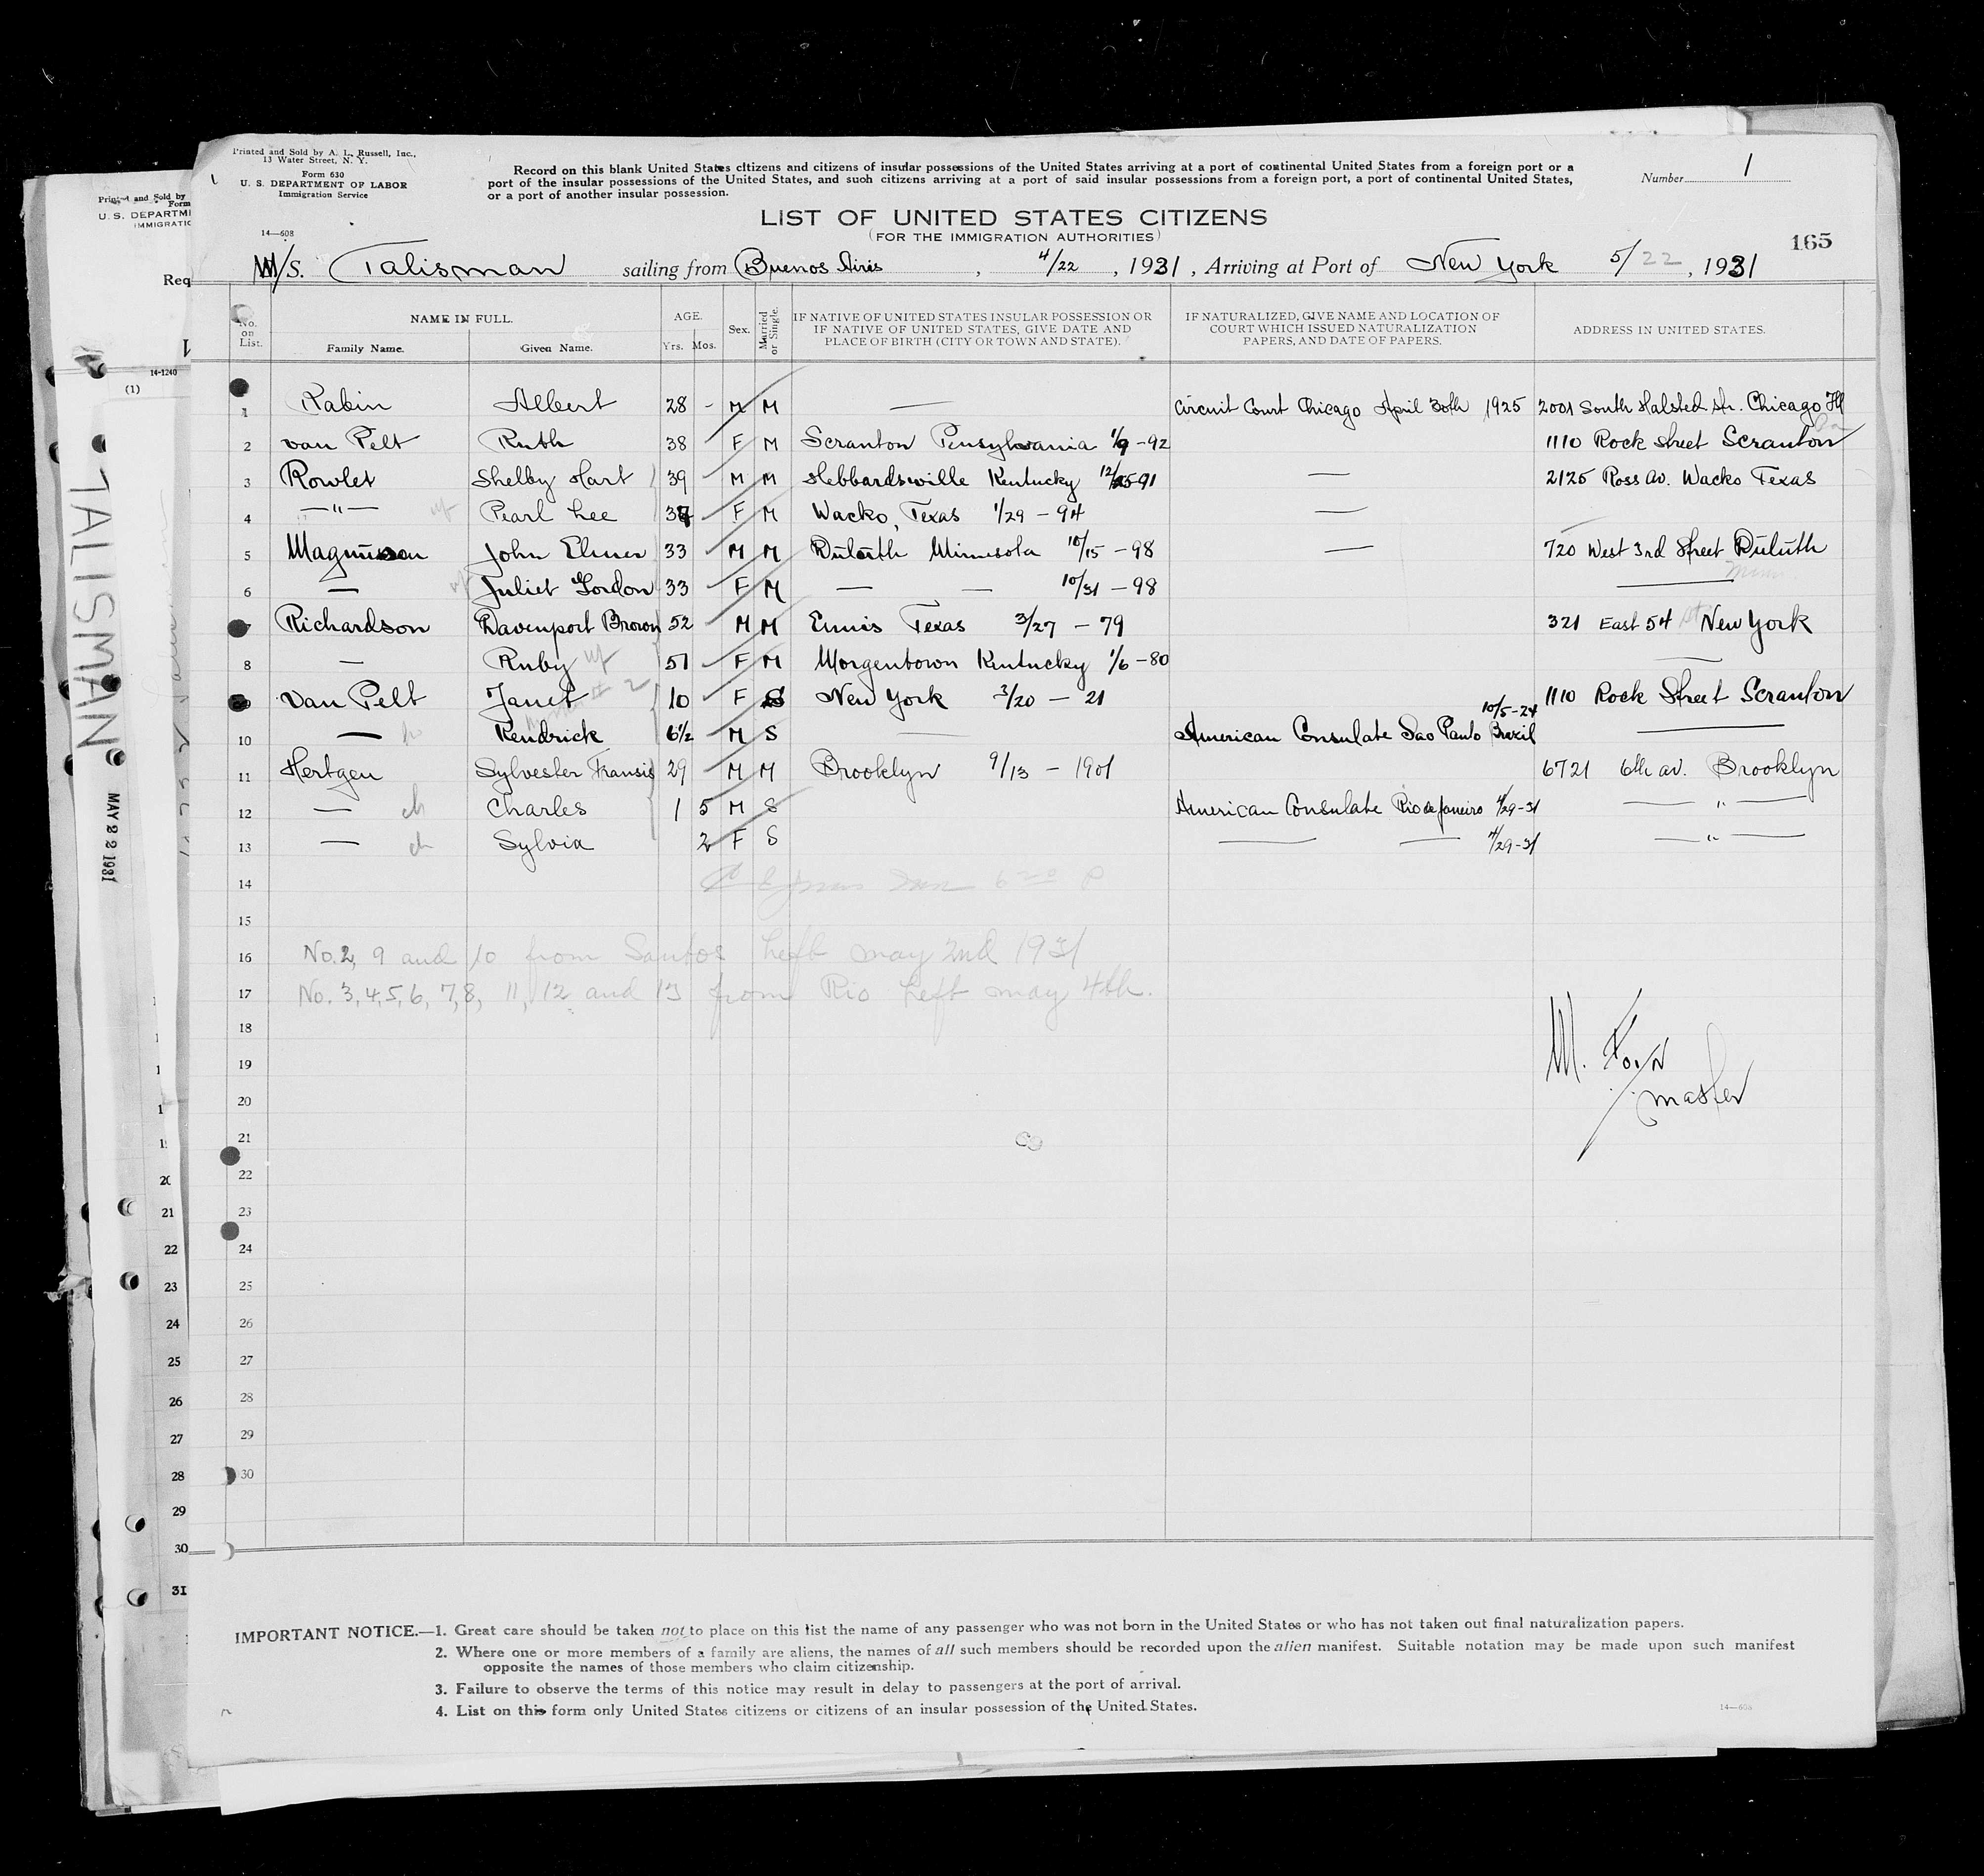 Printed and Sold by A. L. Russell, Inc.,
13 Water Street, N. Y.
Form 630
U. S. DEPARTMENT OF LABOR
Immigration Service
14—608
Record on this blank United States citizens and citizens of insular possessions of the United States arriving at a port of continental United States from a foreign port or a
port of the insular possessions of the United States, and such citizens arriving at a port of said insular possessions from a foreign port, a port of continental United States,
or a port of another insular possession.
Number 1
LIST OF UNITED STATES CITIZENS
(FOR THE IMMIGRATION AUTHORITIES)
165
M/S. Talisman sailing from Buenos Aires, 4/22, 1931, Arriving at Port of New York 5/22, 1931
No. on List. NAME IN FULL. Family Name. Given Name. AGE. Yrs. Mos. Sex. Married or Single. IF NATIVE OF UNITED STATES INSULAR POSSESSION OR IF NATIVE OF UNITED STATES, GIVE DATE AND PLACE OF BIRTH (CITY OR TOWN AND STATE). IF NATURALIZED, GIVE NAME AND LOCATION OF COURT WHICH ISSUED NATURALIZATION PAPERS, AND DATE OF PAPERS. ADDRESS IN UNITED STATES.
1 Rabin Albert 28 - M M — Circuit Court Chicago April 30th 1925 2001 South Halsted Str. Chicago Ill
2 van Pelt Ruth 38 F M Scranton Pensylvania 1/9-92 1110 Rock Street Scranton Pa
3 Rowlet Shelby Hart 39 M M Hebbardswille Kentucky 12/25-91 — 2125 Ross av. Wacko Texas
4 —"— wf Pearl Lee 37 F M Wacko, Texas 1/29 - 94 —
5 Magnuson John Elmer 33 M M Duluth Minnesota 10/15 - 98 — 720 West 3rd Street Duluth
6 — wf Juliet Gordon 33 F M — — 10/31 - 98 — Minn.
7 Richardson Davenport Brown 52 M M Ennis Texas 3/27 - 79 321 East 54 St New York
8 — Ruby wf 51 F M Morgentown Kentucky 1/6 - 80 —
9 Van Pelt Janet # 2 10 F S New York 3/20 - 21 1110 Rock Street Scranton
10 — Kendrick 6½ M S — American Consulate Sao Paulo Brazil 10/5-24 —
11 Hertgen Sylvester Fransis 29 M M Brooklyn 9/13 - 1901 6721 6th av. Brooklyn
12 — ch Charles 1 5 M S American Consulate Rio de Janeiro 4/29-31 — " —
13 — ch Sylvia 2 F S — — 4/29-31 — " —
14
15
16 No. 2, 9 and 10 from Santos Left may 2nd 1931
17 No. 3, 4, 5, 6, 7, 8, 11, 12 and 13 from Rio Left may 4th.
18
19
20
21
22
23
24
25
26
27
28
29
30
master
IMPORTANT NOTICE.—1. Great care should be taken not to place on this list the name of any passenger who was not born in the United States or who has not taken out final naturalization papers.
2. Where one or more members of a family are aliens, the names of all such members should be recorded upon the alien manifest. Suitable notation may be made upon such manifest
opposite the names of those members who claim citizenship.
3. Failure to observe the terms of this notice may result in delay to passengers at the port of arrival.
4. List on this form only United States citizens or citizens of an insular possession of the United States.
14—608
Printed and Sold by
Form
U. S. DEPARTM
IMMIGRATIC
Req
14-1240
(1)
TALISMAN
MAY 22 1931
20
21
22
23
24
25
26
27
28
29
30
31